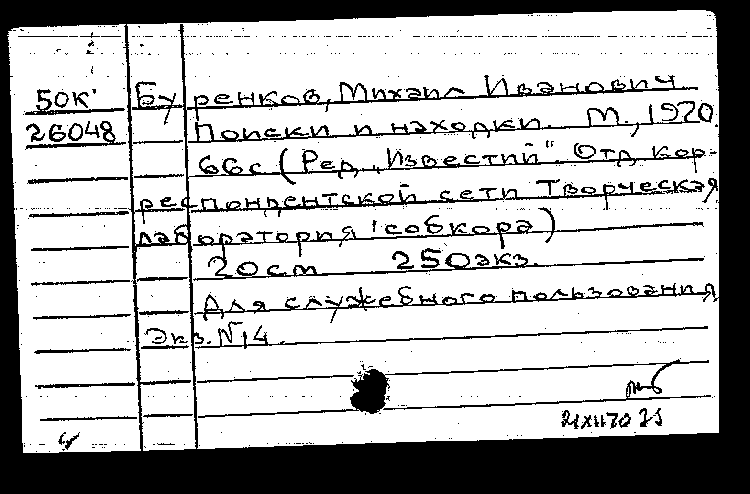 50К' Буренков, Михаил Иванович
26048 Поиски и находки. М., 1970.
66с (Ред. „Известий". Отд. кор-
респондентской сети Творческая
лаборатория собкора)
20см 250экз.
Для служебного пользования
Экз. №14.